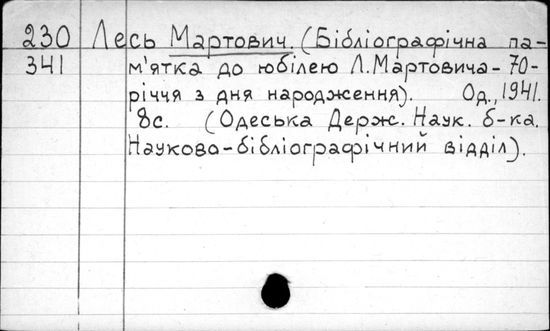 230 Лесь Мартович. (Бібліографічна па-
341 м'ятка до ювілею Л.Мартовича-70-
річчя з дня народження). Од., 1941.
8с. (Одеська Держ. Наук. б-ка.
Науково-бібліографічний відділ).